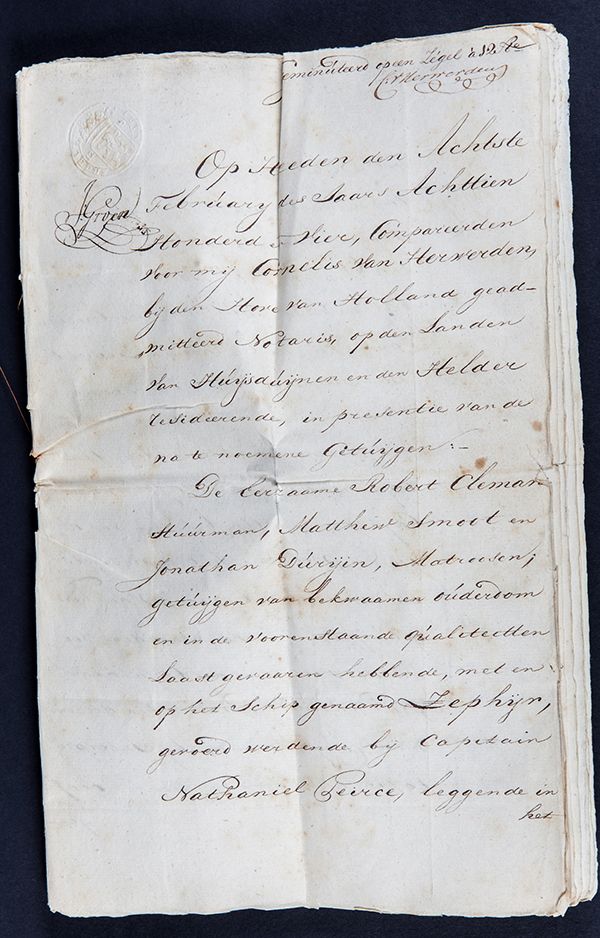 Geminuteerd op een Zegel à 12 Sts
C V Herwerden
J Groen
Op Heeden den Achtste
February des Jaars Achttien
Honderd & Vier, Compareerden
voor mij Cornelis van Herwerden,
bij den Hove van Holland gead-
mitteerd Notaris, op den Landen
van Húijsdúijnen en den Helder
resideerende, in presentie van de
na te noemene Getúijgen:-
De Eerzaame Robert Cleman
Stúúrman, Matthew Smoot en
Jonathan Dúrijin, Matroosen;
getúijgen van bekwaamen oúderdom
en in de voorenstaande qúaliteitten
Laast gevaaren hebbende, met en
op het Schip genaamd Zephijr,
gevoerd werdende by Capitain
Nathaniel Peirce, leggende in
het